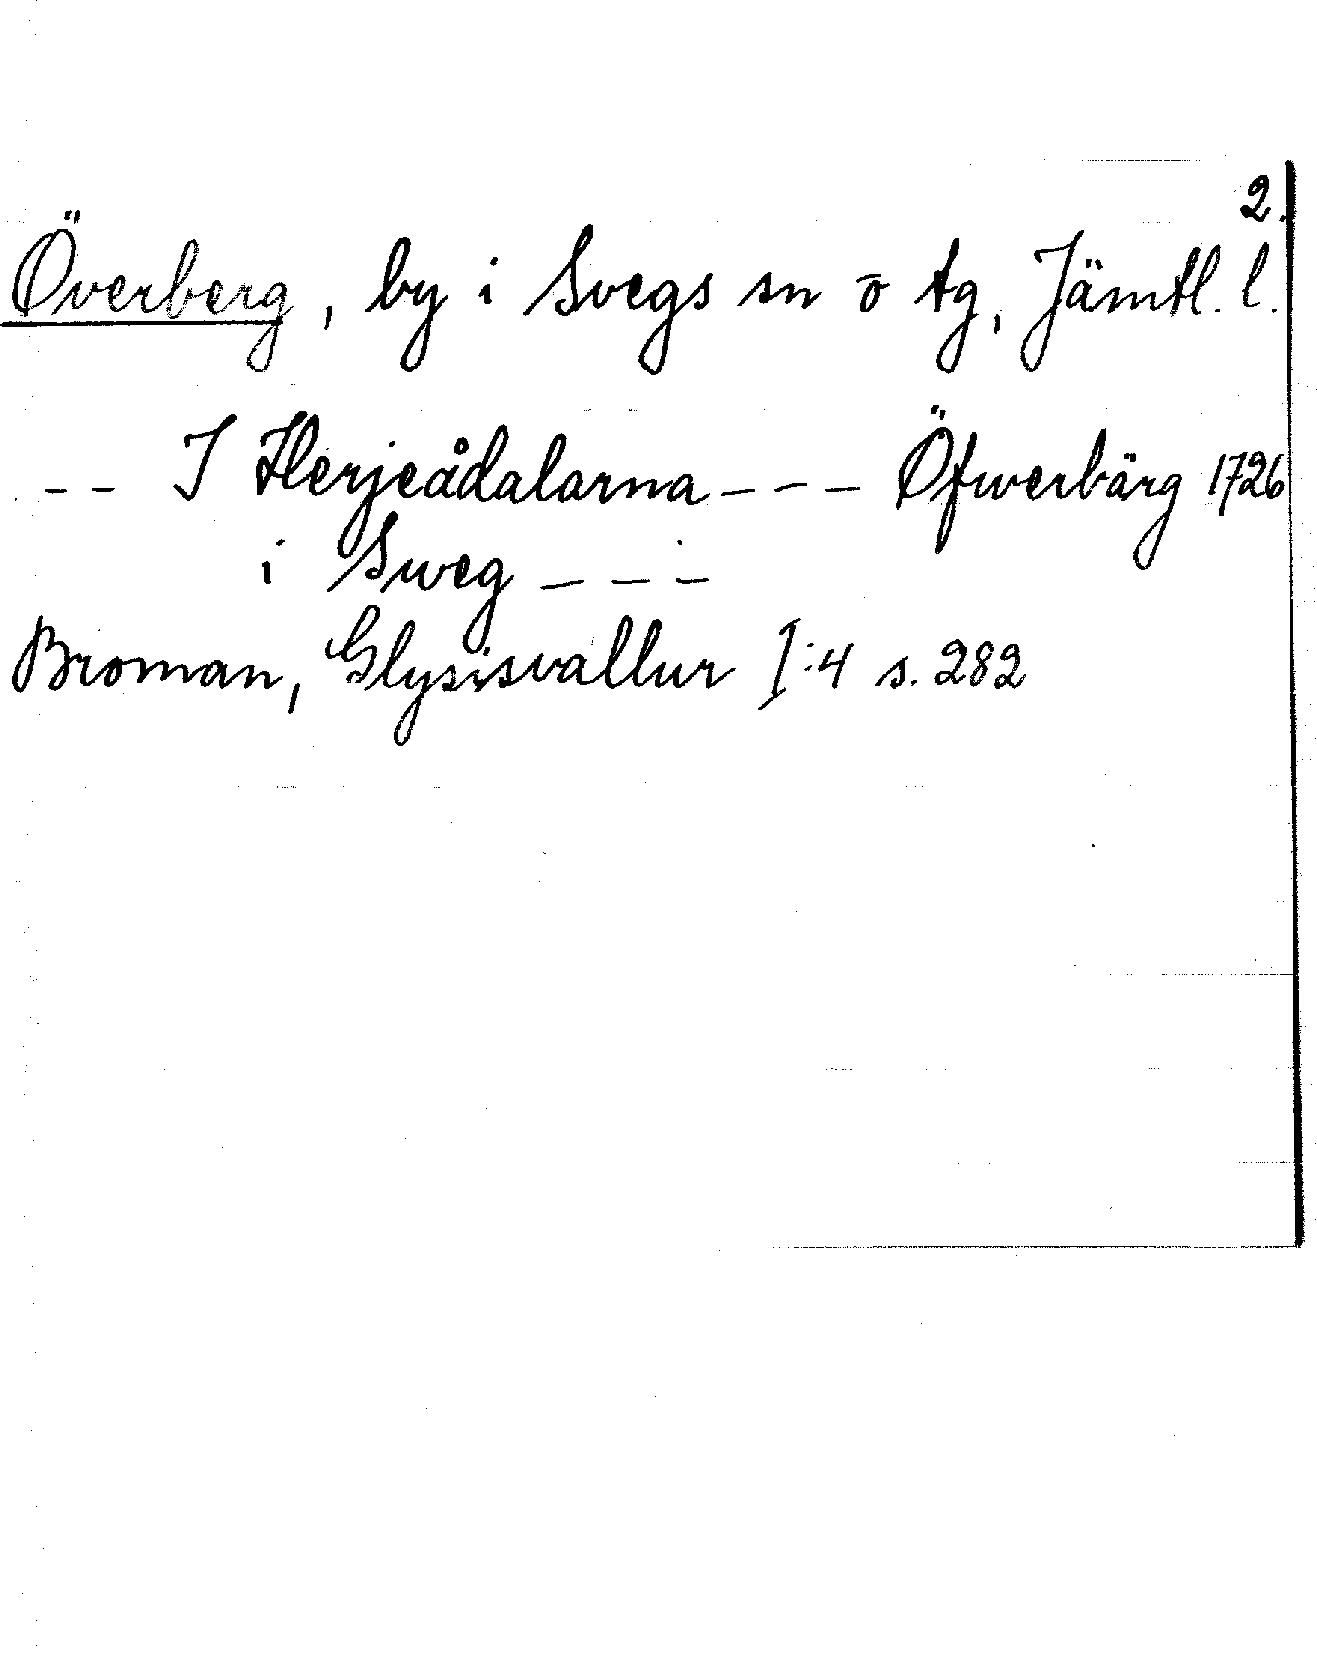 2.
Överberg, by i Svegs sn o tg, Jämtl. l.
-- I Herjeådalarna --- Öfwerbärg 1726
i Sweg ---
Broman, Glysisvallur I:4 s. 282